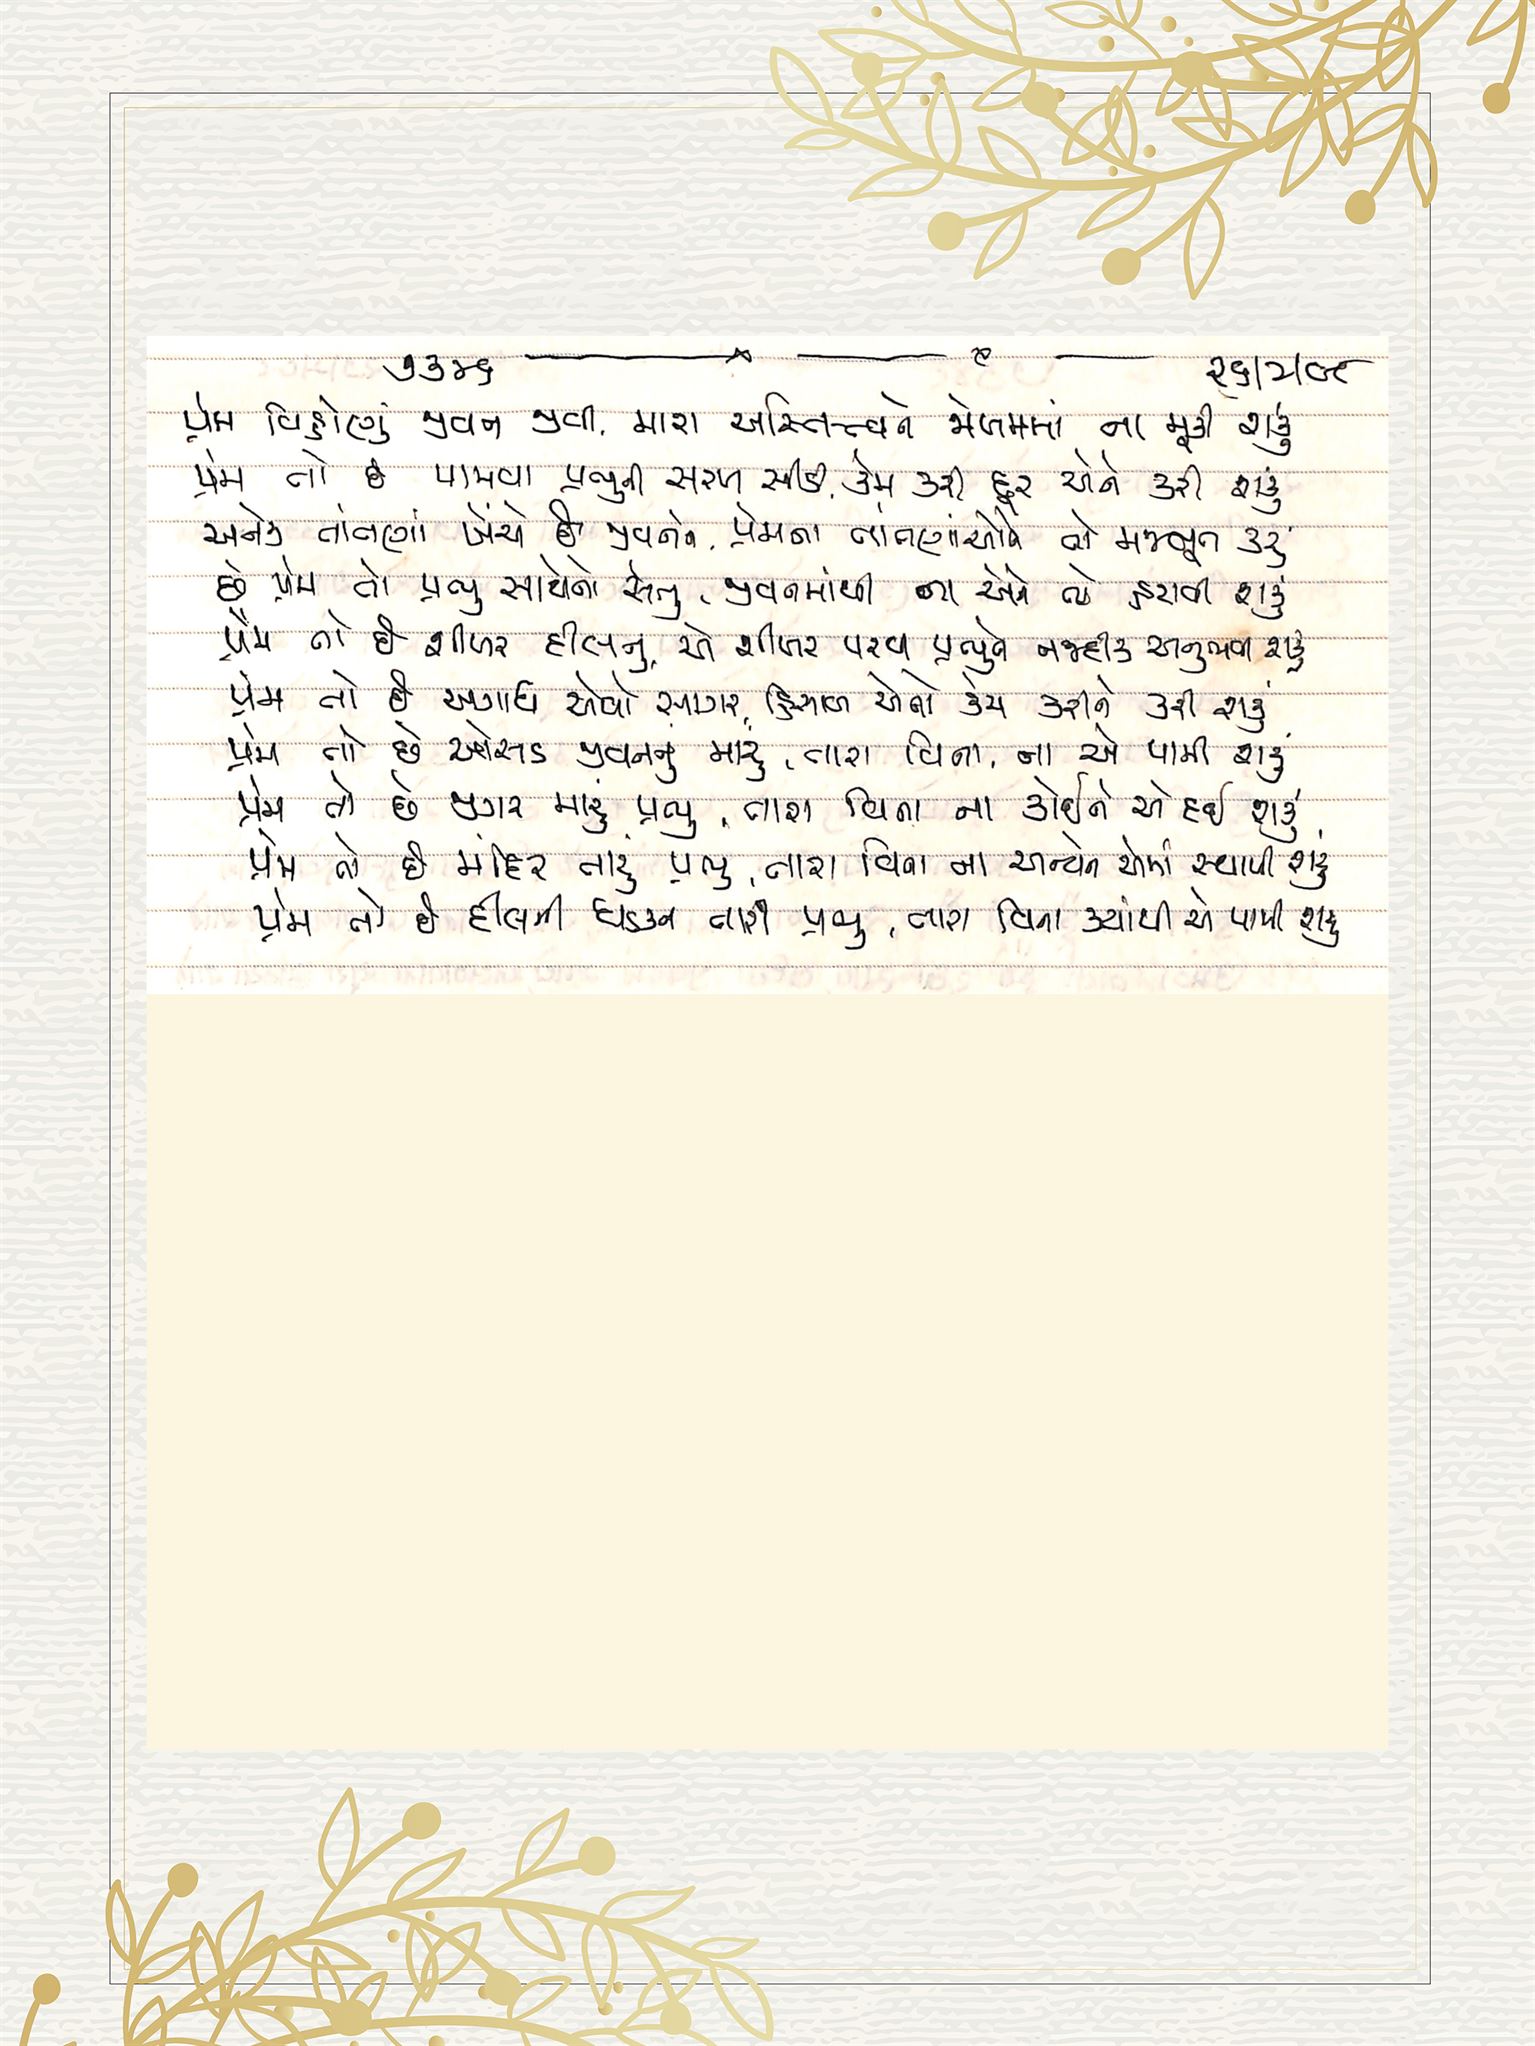 ૭૩૪૬ ——— x ——— ૯ ——— ૨૬/૨/૯૮
પ્રેમ વિહોણું જીવન જીવી, મારા અસ્તિત્ત્વને જોખમમાં ના મૂકી શકું
પ્રેમ તો છે પામવા પ્રભુની સરળ સીડી, કેમ કરી દૂર એને કરી શકું
અનેક તાંતણાં ખેંચે છે જીવનને, પ્રેમના તાંતણાંઓને જો મજબૂત કરું
છે પ્રેમ તો પ્રભુ સાથેનો સેતુ, જીવનમાંથી ના એને જો હટાવી શકું
પ્રેમ તો છે શીખર દીલનું, એ શીખર પરથી પ્રભુને નજદીક અનુભવી શકું
પ્રેમ તો છે અગાધ એવો સાગર, હિસાબ એનો કેમ કરીને કરી શકું
પ્રેમ તો છે ઓસડ જીવનનું મારું, તારા વિના, ના એ પામી શકું
પ્રેમ તો છે જીગર મારું પ્રભુ, તારા વિના ના કોઈને એ દઈ શકું
પ્રેમ તો છે મંદિર તારું પ્રભુ, તારા વિના ના અન્યને એમાં સ્થાપી શકું
પ્રેમ તો છે દીલની ધડકન તારી પ્રભુ, તારા વિના ક્યાંથી એ પામી શકું